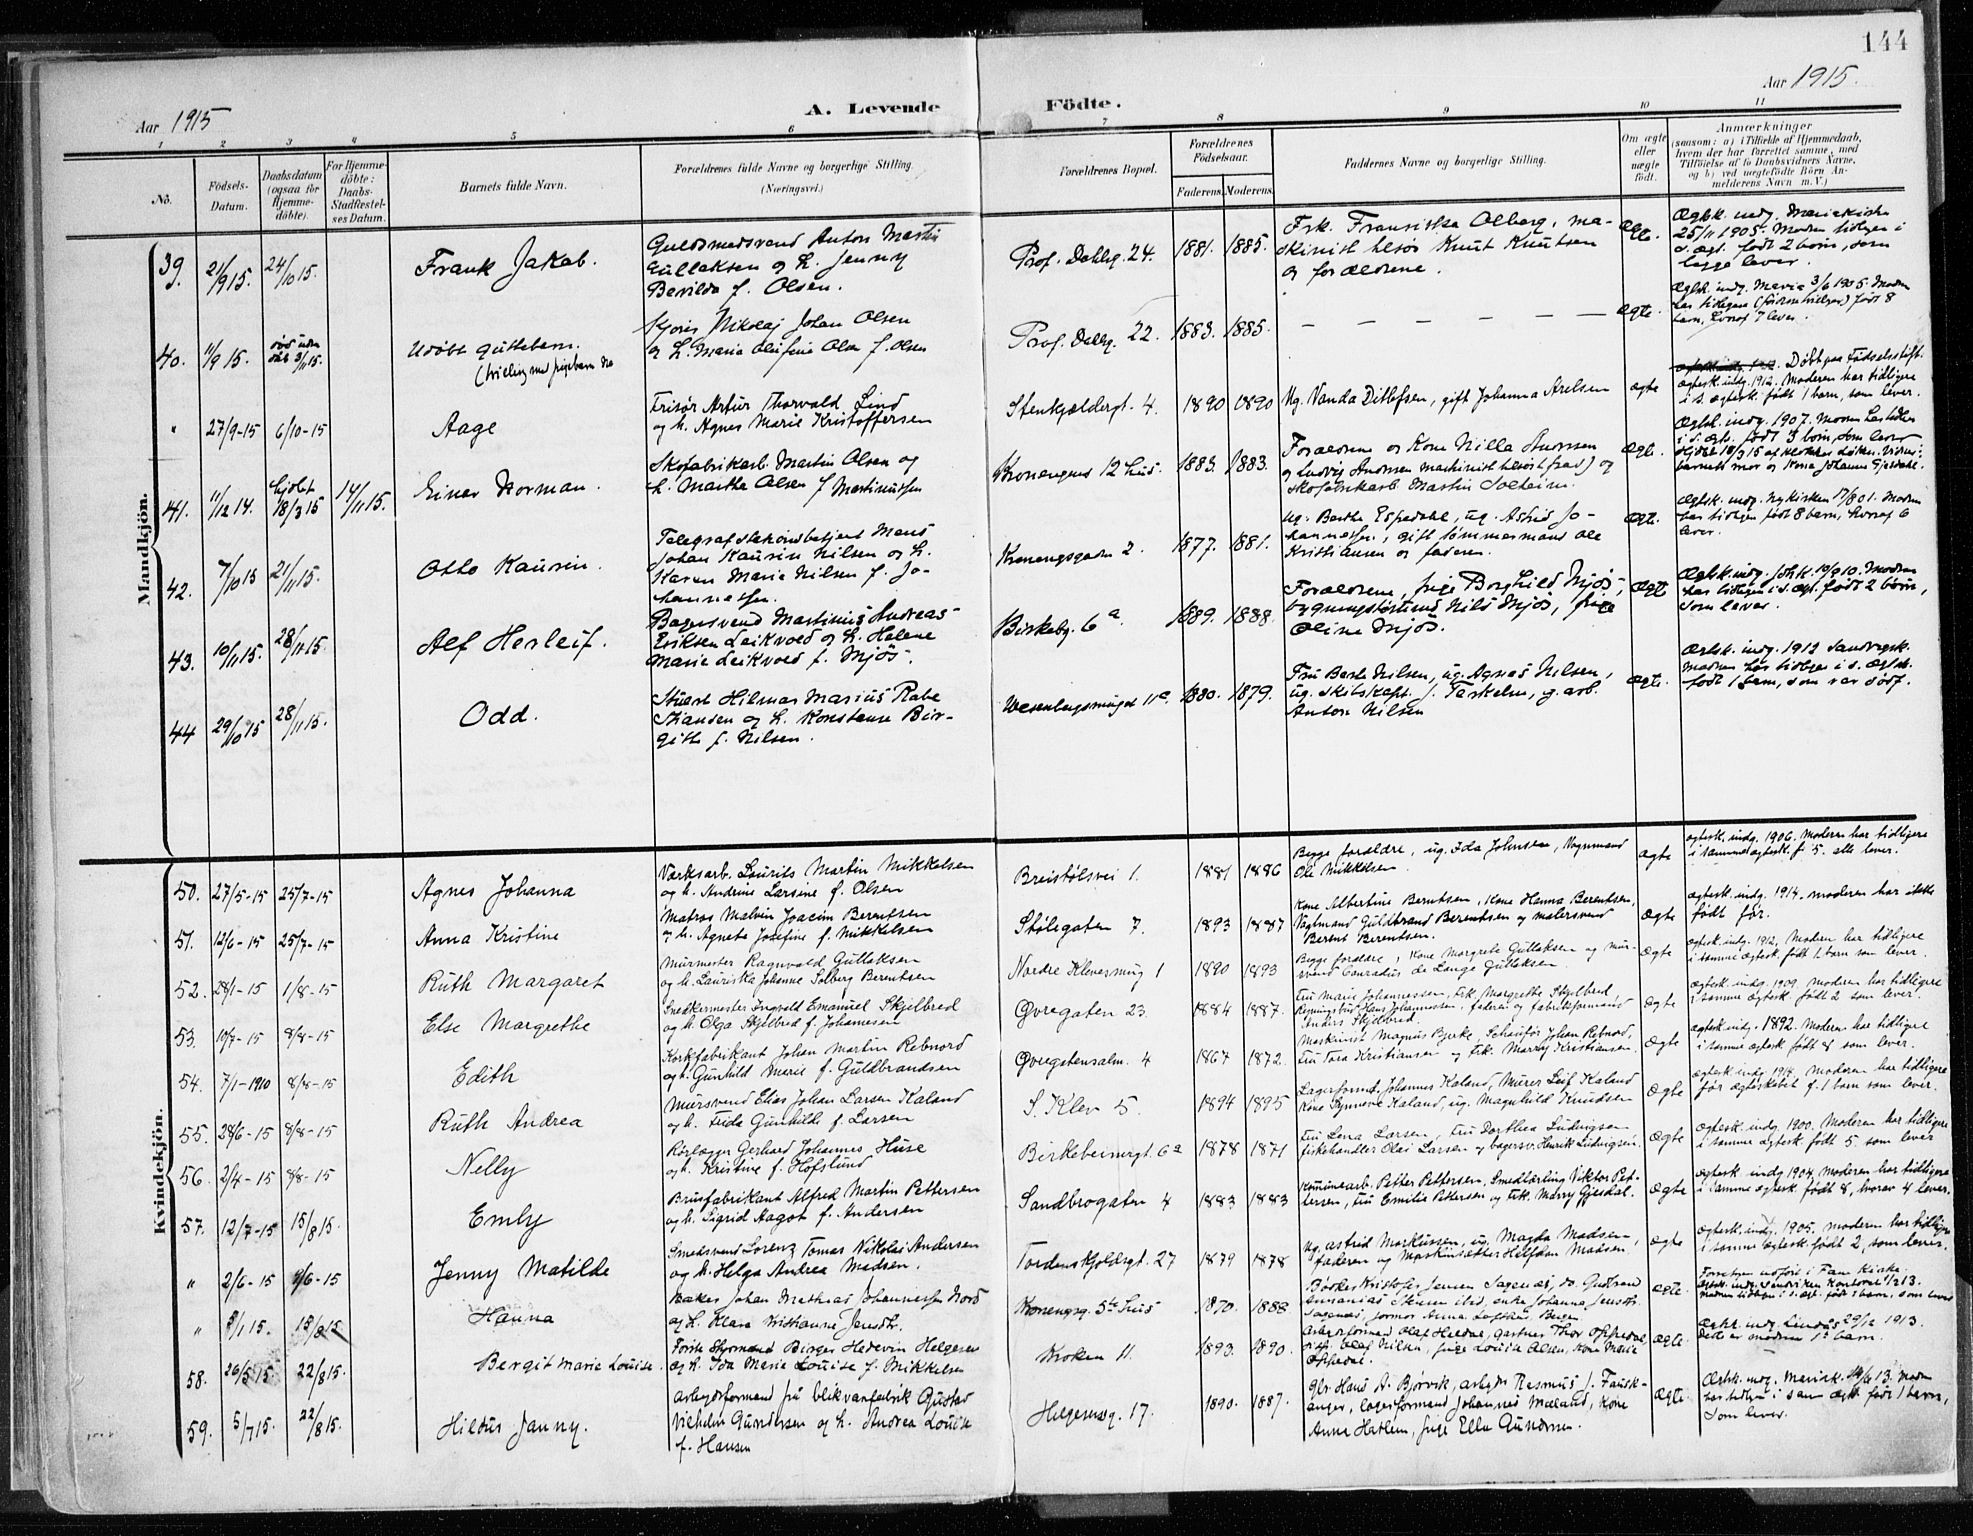 144
Aar 1915
A. Levende Födte.
Aar 1915.
1 2 3 4 5 6 7 8 9 10 11
No.
Födsels-
Datum.
Daabsdatum
(ogsaa for
Hjemme-
döbte).
For Hjemme-
döbte:
Daabs-
Stadfæstel-
ses Datum.
Barnets fulde Navn.
Forældrenes fulde Navne og borgerlige Stilling.
(Næringsvei.)
Forældrenes Bopæl.
Forældrenes
Födselsaar.
Faderens.
Moderens.
Faddernes Navne og borgerlige Stilling.
Om ægte
eller
uægte
født.
Anmærkninger
(saasom: a) i Tilfælde af Hjemmedaab,
hvem der har forrettet samme, med
Tilföielse af to Daabsvidners Navne,
og b) ved uægtefödte Börn An-
melderens Navn m. V.)
Mandkjön.
39. 21/9 15. 24/10 15.
Frank Jakob.
Guldsmedsvend Anton Martin
Gullaksen og h. Jenny
Bevilda f. Olsen.
Prof. Dahlsg. 24. 1881. 1885.
Frk. Fransiska Olberg, ma-
skinist Knut Knutsen
og forældrene.
Ægte.
Ægtsk. indg. Mariakirken
25/11 1905. Moden tidligere i
s. ægt. født 2 børn, som
begge lever.
40. 11/9 15. død uden
daab 3/11 15.
Udøbt guttebarn.
(tvilling med pigebarn No
Nikolaj Johan Olsen
og h. Maria Olufine Olsen f. Olsen
Prof. Dahlsg. 22. 1883. 1885.
— — — — — —
Ægte.
Ægtsk. indg. Maria 3/6 1905. Modren
har tidligere født 8
barn, hvoraf 7 lever.
" 27/9-15 6/10-15
Aage
Frisør Artur Thorvald Lind
og h. Agnes Marie Kristoffersen
Stenkjældergt. 4. 1890 1890
Ug. Vanda Ditlefsen, gift Johanna Axelsen
ægte
Døbt paa Fødselsstift.
ægtesk. indg. 1912. Moderen har tidligere
i s. ægtesk. født 1 barn, som lever.
41. 11/12 14. hjdøbt
18/3 15 14/11 15.
Einar Norman.
Skofabrikarb. Martin Olsen og
h. Martha Olsen f Martinussen
Kronengens 12 hus. 1883. 1883.
Forældrene og Kone Nilla
og Ludvig maskinist og
skofabrikarb. Martin Solheim.
Ægte.
Ægtsk. indg. 1907. Modren har tidl.
i s. ægt. født 3 børn, som lever
42. 7/10 15 21/11 15.
Otto Kaurin.
Telegrafstationsbetjent Mons
Johan Kaurin Nilsen og h.
Karen Marie Nilsen f. Jo-
hannessen.
Kronengsgaden 2. 1877. 1881.
Ug. Berthe Espedahl, ug. Astrid Jo-
hannessen, gift tømmermand Ole
Kristiansen og faderen.
Ægte.
Ægtsk. indg. Nykirken 17/8 01. Modren
har tidligere født 8 barn, hvoraf 6
lever.
43. 10/11 15. 28/11 15.
Alf Herleif.
Bagersvend Martinius Andreas
Eriksen Leikvold og h. Helene
Marie Leikvold f. Mjøs.
Birkebg. 6a. 1889. 1888.
Forældrene, frøge Borghild Mjøs,
bygningstøtsmd Nils Mjøs,
Oline Mjøs.
Ægte
Ægtsk. indg. Joh.k. 10/9 10. Modren
har tidligere i s. ægt. født 2 børn,
som lever.
44 29/10 15 28/11 15.
Odd.
Stuert Hilmar Marius Rabe
Hansen og h. Konstanse Bir-
gith f. Nilsen.
Wesenbergsmuget 11a. 1880. 1879.
Fru Berte Nilsen, ug. Agnes Nilsen,
ug. Skibskapt. J. Terkelsen, g. arb.
Anton Nilsen
Ægte.
Ægtsk. indg. 1913 Sandvigsk.
Modren har tidligere i s. ægtsk.
født 1 barn, som var død.
Kvindekjön.
50. 27/5-15 25/7-15
Agnes Johanna
Værksarb. Laurits Martin Mikkelsen
og h. Andrine Larsine f. Olsen
Breistølsvei 1. 1881 1886
Begge forældre, ug. Ida Johnsen, Vognmand
Ole Mikkelsen.
ægte
ægtesk. indg. 1906. Moderen har tidligere
i samme ægtesk. f. 5. alle lever.
51. 12/6-15 25/7-15
Anna Kristine
Matros Malvin Joacim Berentsen
og h. Agnete Josefine f. Mikkelsen
Stølegaten 7. 1893 1887
Kone Albertine Berntsen, Kone Hanna Berentsen,
Vagtmand Guldbrand Berentsen og malersvend
Berent Berentsen.
Ægte
ægtesk. indg. 1914. moderen har ikke
født før.
52. 28/1-15 1/8-15
Ruth Margaret
Murmester Ragnvald Gullaksen
og h. Lauriska Johanne Solberg Berentsen
Nordre Klevesmug 1 1890 1893
Begge forældre, Kone Margrete Gullaksen og mur-
svend Conradus de Lange Gullaksen.
Ægte
ægtesk. indg. 1912. Moderen har tidligere
i samme ægtesk. født 1 barn som lever.
53. 10/7-15 8/8-15
Else Margrethe
Snedkermester Ingvald Emanuel Skjelbred
og h. Olga Skjelbred f. Johannesen
Øvregaten 23. 1884 1887.
Fru Marie Johannessen, Frk. Margrethe Skjelbred,
Hans Johannessen, faderen og fabrikformand
Anders Skjelbred.
Ægte
ægtesk. indg. 1909. moderen har tidligere
i samme ægtesk. født 2 som lever.
54. 7/1-1910 8/8-15
Edith
Korkfabrikant Johan Martin Rebnord
og h. Gunhild Marie f. Guldbrandsen
Øvregatensalm. 4 1867 1872.
Maskinist Magnus Bjerke, Schaufør Johan Rebnord,
Fru Thea Kristiansen og frk. Marry Kristiansen.
Ægte
ægtesk. indg. 1892. Moderen har tidligere
i samme ægtesk. født 8 som lever.
55. 28/6-15 8/8-15
Ruth Andrea
Mursvend Elias Johan Larsen Kaland
og h. Frida Gunhilde f. Larsen
S. Klev 5. 1894 1895
Lagerformd. Johannes Kaland, Murer Leif Kaland
Kone Synneve Kaland, ug. Magnhild Knudsen
Ægte
ægtesk. indg. 1914. Moderen har tidligere
før ægteskabet f. 1 barn som lever.
56. 2/4-15 8/8-15
Nelly
Rørlægger Gerhard Johannes Huse
og h. Kristine f. Hofslund
Birkebeinergt. 6a 1878 1871
Fru Lena Larsen, Fru Dorthea Ludvigsen
fiskehandler Olai Larsen og bagersv. Henrik Ludvigsen.
Ægte
ægtesk. indg. 1900. Moderen har tidligere
i samme ægtesk. født 5. som lever
57. 12/7-15 15/8 15.
Emly
Brusfabrikant Alfred Martin Pettersen
og h. Sigrid Aagot f. Andersen
Sandbrogaten 4 1883 1883
Kommunearb. Petter Pettersen, Smedlærling Viktor Pet-
tersen, Fru Emilie Pettersen og Frk. Marry Gjesdal.
Ægte
ægtesk. indg. 1904. Moderen har tidligere
i samme ægtesk. født 8, hvorav 4 lever.
" 2/6-15 9/6-15
Jenny Matilde
Smedsvend Lorenz Tomas Nikolai Andersen
og h. Helga Andrea Madsen.
Tordenskjoldsgt. 27 1879 1878
Ug. Astrid Markussen, ug. Magda Madsen,
faderen og Maskinsætter Halfdan Madsen.
ægte
ægtesk. indg. 1905. moderen har tidligere
i samme ægtesk. født 2, som lever.
" 8/1 15. 15/8 15
Hanna
Johan Mathias Johannessen Nord
og h. Klara Kristianne
Kronengsg. 5te hus 1870. 1888
Ægte.
Forretn. udført i Fane Kirke.
58. 26/5 15. 22/8 15.
Bergit Marie Louise.
Første Styrmand Birger Hedevin Helgesen
og h. Ida Marie Louise f. Mikkelsen
Kroken 11. 1893. 1890.
Arbeidsformand Olaf Heldal, gartner Thor Ophedal,
gift. Olaf Nilsen, frøge Louise Olsen, Kone Marie
Ophedal.
Ægte.
Ægtsk. indg. Lindås 29/12 1913.
Dette er modrens 1ste barn.
59. 5/7 15. 22/8 15.
Hildur Janny.
Arbejdsformand på blikvarefabrik Gustav
Vilhelm Gundersen og h. Andrea Louise
f. Hansen
Helgesensg. 17. 1890. 1887.
Gbr. Hans A. Bjørvik, arbeyder Rasmus J. Fausk-
anger, lagerformand Johannes Mæland, Kone
Anna Hatlem, frøge Ella Gundersen.
Ægte.
Ægtsk. indg. Mariak. 14/6 13. Modren
har tidligere i sam ægtk født 1 barn,
som lever.